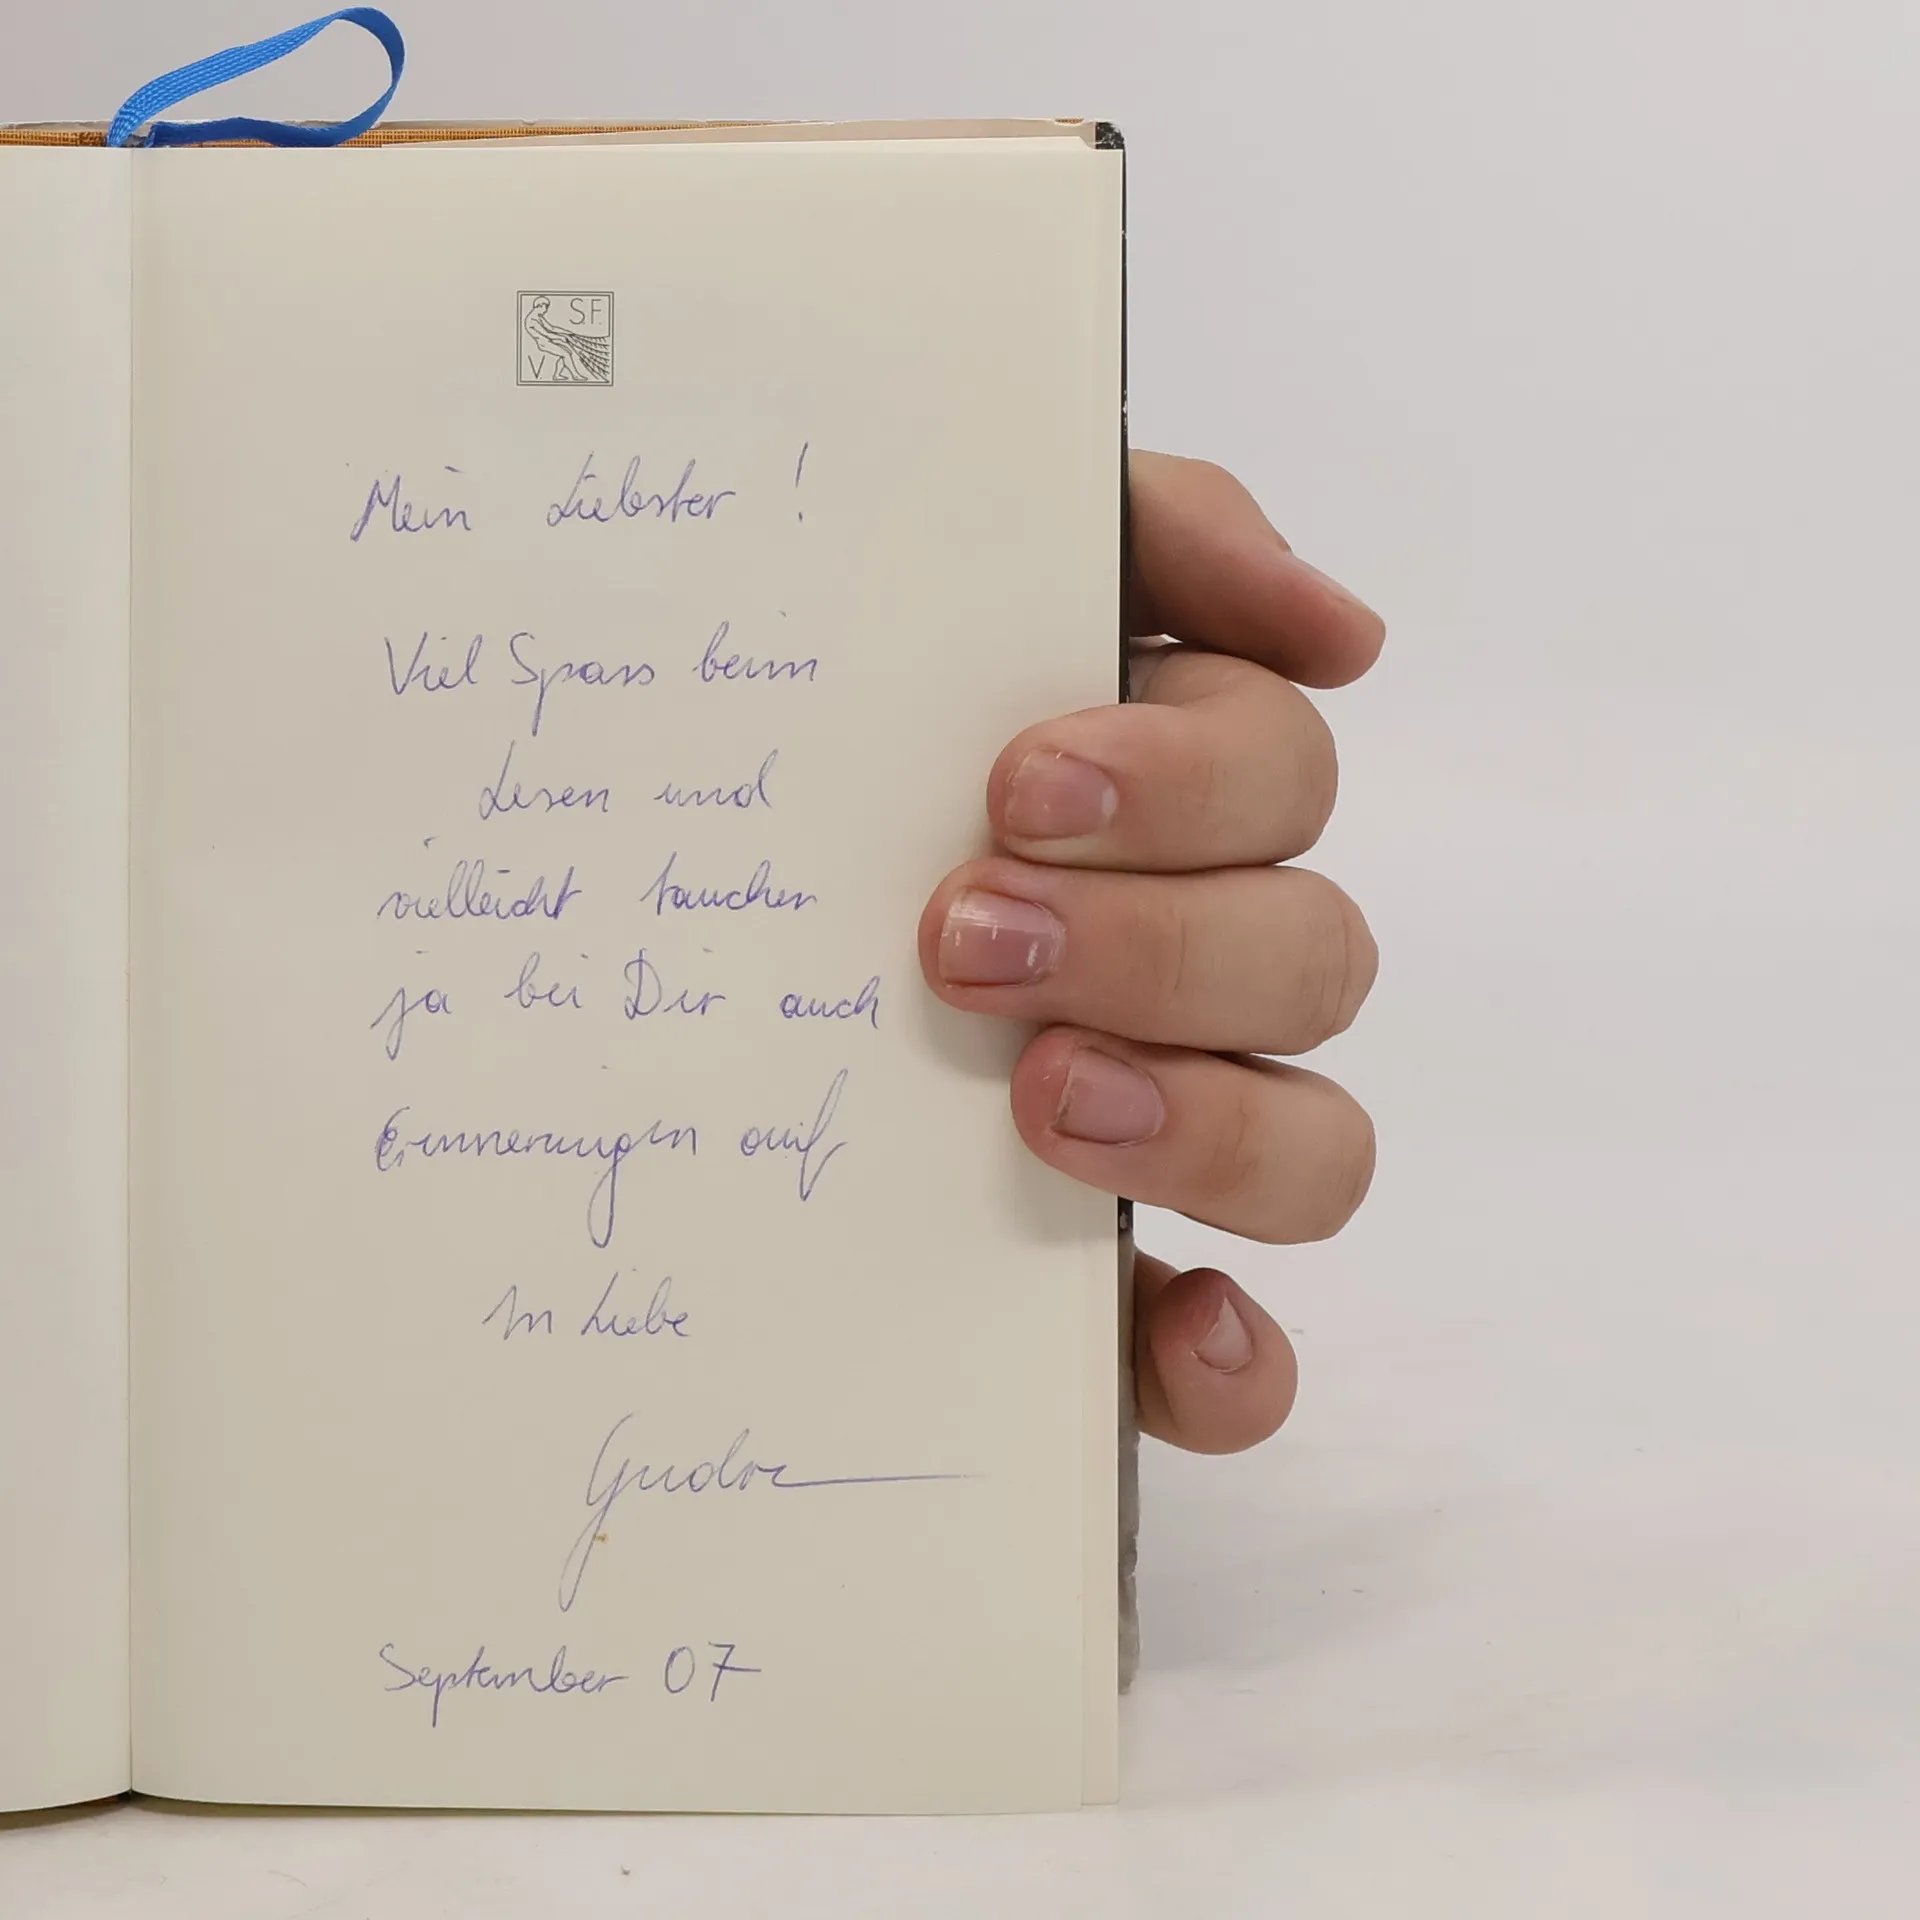 S.F.
V.
Mein Liebster !
Viel Spass beim
Lesen und
vielleicht tauchen
ja bei Dir auch
Erinnerungen auf
In Liebe
Gudrun
September 07